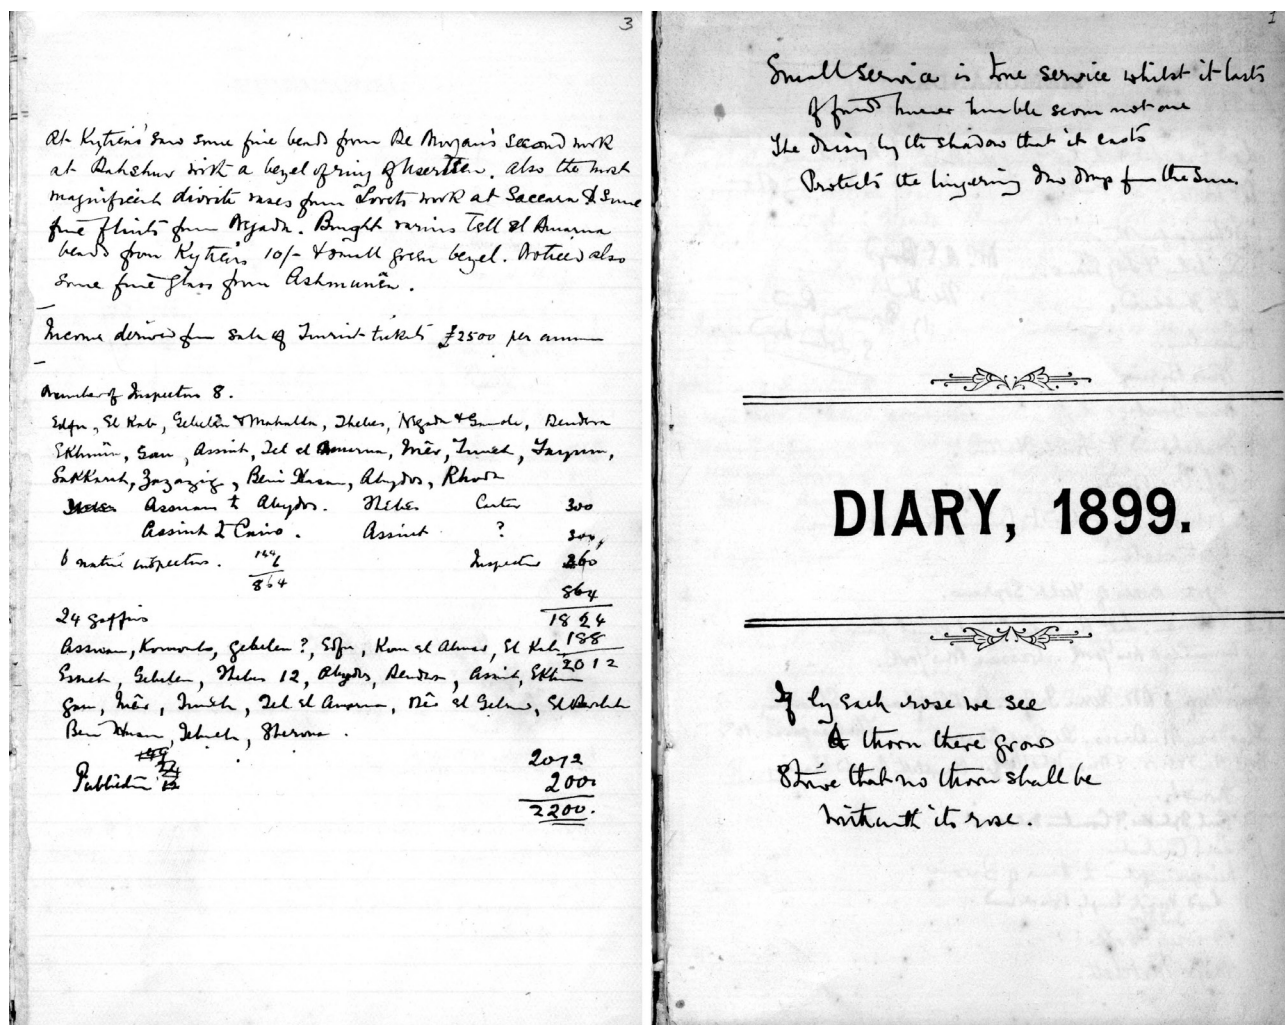 3
At Kytica's saw some fine beads from De Morgan's second work
at Dahshur with a bezel of ring of Usertsen. Also the most
magnificent diorite vases from Loret's work at Saccara & some
fine flints from Negada. Bought various Tell el Amarna
beads from Kytica's 10/- & small green bezel. Noticed also
some fine glass from Ashmunên.
Income derived from sale of Tourist tickets £2500 per annum
Number of Inspectors 8.
Edfu, El Kab, Gebelên & Mahalla, Thebes, Negada & Gamola, Dendera
Ekhmim, Gau, Assiut, Tel el Amarna, Mêr, Fayum,
Sakkarah, Zagazig, Beni Hasan, Abydos, Rhoda
Assuan to Abydos. Thebes Carter 300
Assiut to Cairo. Assiut ? 300
6 native inspectors. 144 Inspector 360
6
864
864
24 gaffirs 1824
188
Assuan, Komombo, Gebelen ?, Edfu, Kom el Ahmar, El Kab, 2012
Esneh, Gebelen, Thebes 12, Abydos, Dendera, Assiut, Ekhmim
Gau, Mêr, Tel el Amarna, Dêr el Gebrawi, El Bersheh
Beni Hasan, Tehneh, Sharona.
2012
Publication 200
2200.
1
Small service is true service whilst it lasts
Of friends however humble scorn not one
The daisy by the shadow that it casts
Protects the lingering dew drop from the Sun.
DIARY, 1899.
If by each rose we see
A thorn there grows
Strive that no thorn shall be
Without its rose.